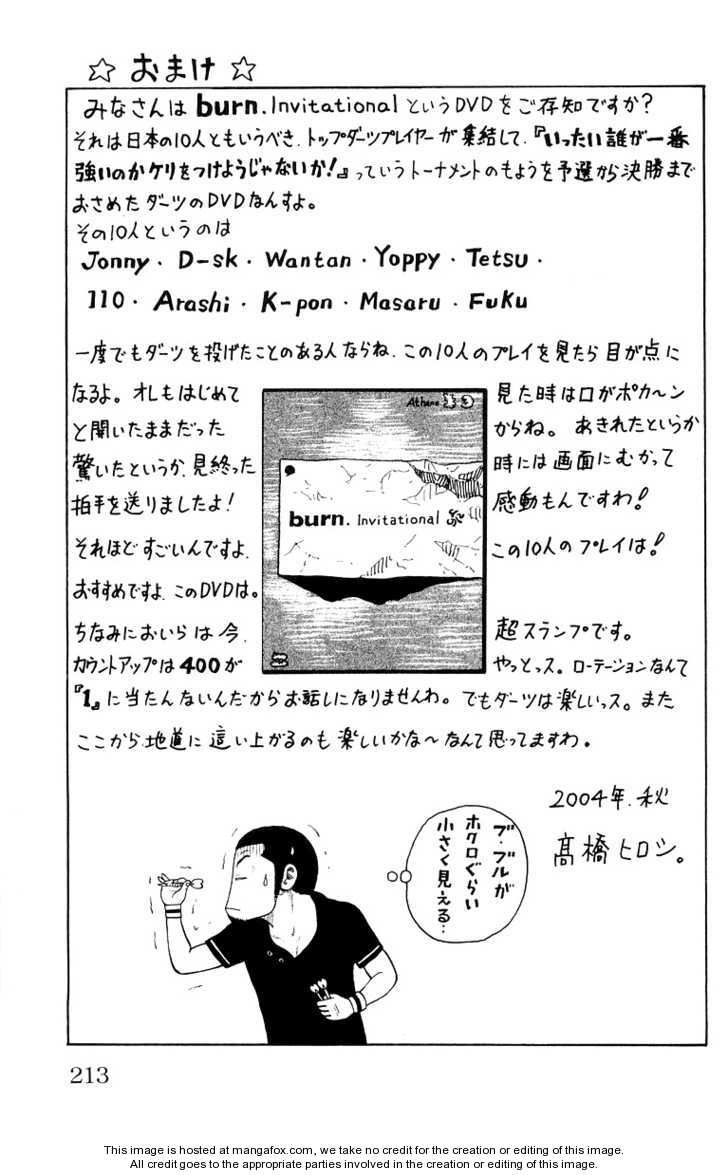 ☆ おまけ ☆
みなさんは burn. Invitational というDVDをご存知ですか?
それは日本の10人ともいうべき、トップダーツプレイヤーが集結して、『いったい誰が一番
強いのかケリをつけようじゃないか!』っていうトーナメントのもようを予選から決勝まで
おさめたダーツのDVDなんすよ。
その10人というのは
Jonny・D-sk・Wantan・Yoppy・Tetsu・
110・Arashi・K-pon・Masaru・Fuku
一度でもダーツを投げたことのある人ならね、この10人のプレイを見たら目が点に
なるよ。オレもはじめて見た時は口がポカ〜ン
と開いたままだったからね。あきれたというか
驚いたというか、見終った時には画面にむかって
拍手を送りましたよ!感動もんですわ!
それほどすごいんですよ、この10人のプレイは!
おすすめですよ、このDVDは。
ちなみにおいらは今、超スランプです。
カウントアップは400がやっとっス。ローテーションなんて
『1』に当たんないんだからお話しになりませんわ。でもダーツは楽しいっス。また
ここから地道に這い上がるのも楽しいかな〜なんて思ってますわ。
Athens
burn. Invitational
2004年、秋
髙橋ヒロシ。
ブ・ブルが
ホクロぐらい
小さく見える…
213
This image is hosted at mangafox.com, we take no credit for the creation or editing of this image.
All credit goes to the appropriate parties involved in the creation or editing of this image.